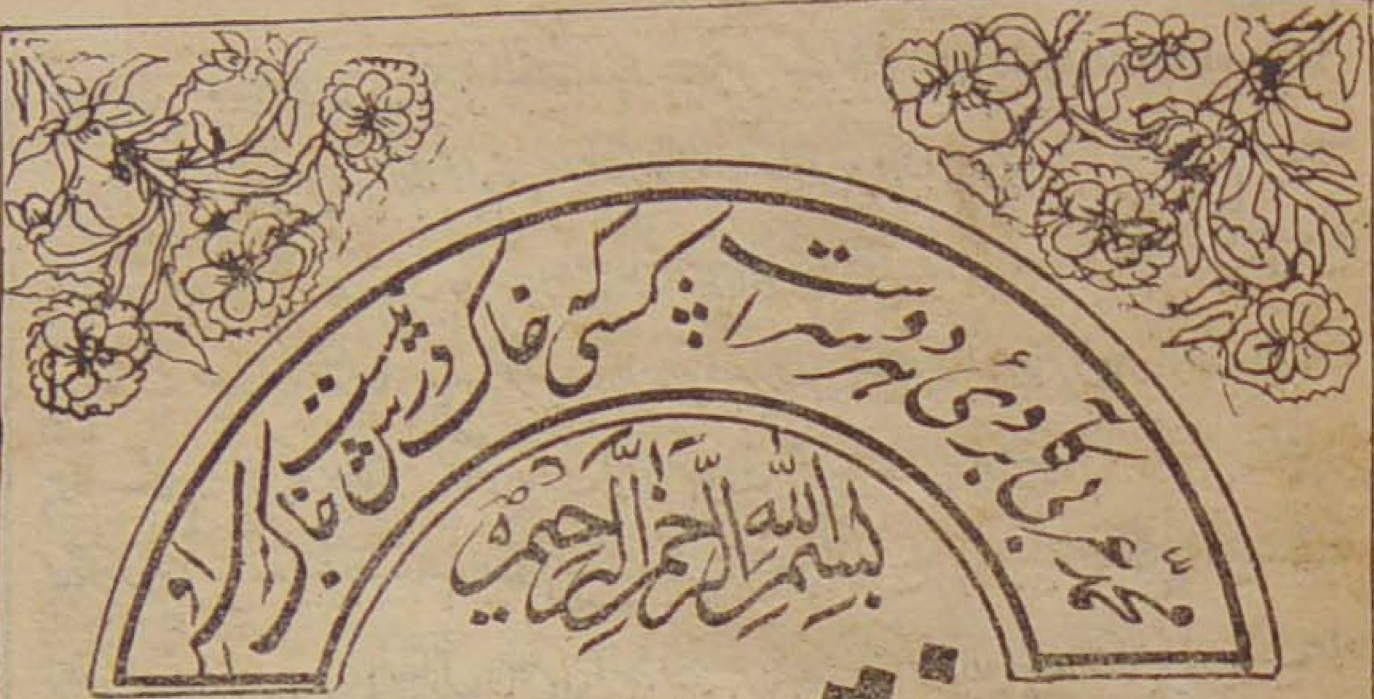 محمد عربی کابروئی ہر دو سراست
کسی کہ خاک درش نیست خاک بر سر او
بِسْمِ اللّٰہِ الرَّحْمٰنِ الرَّحِیْمِ